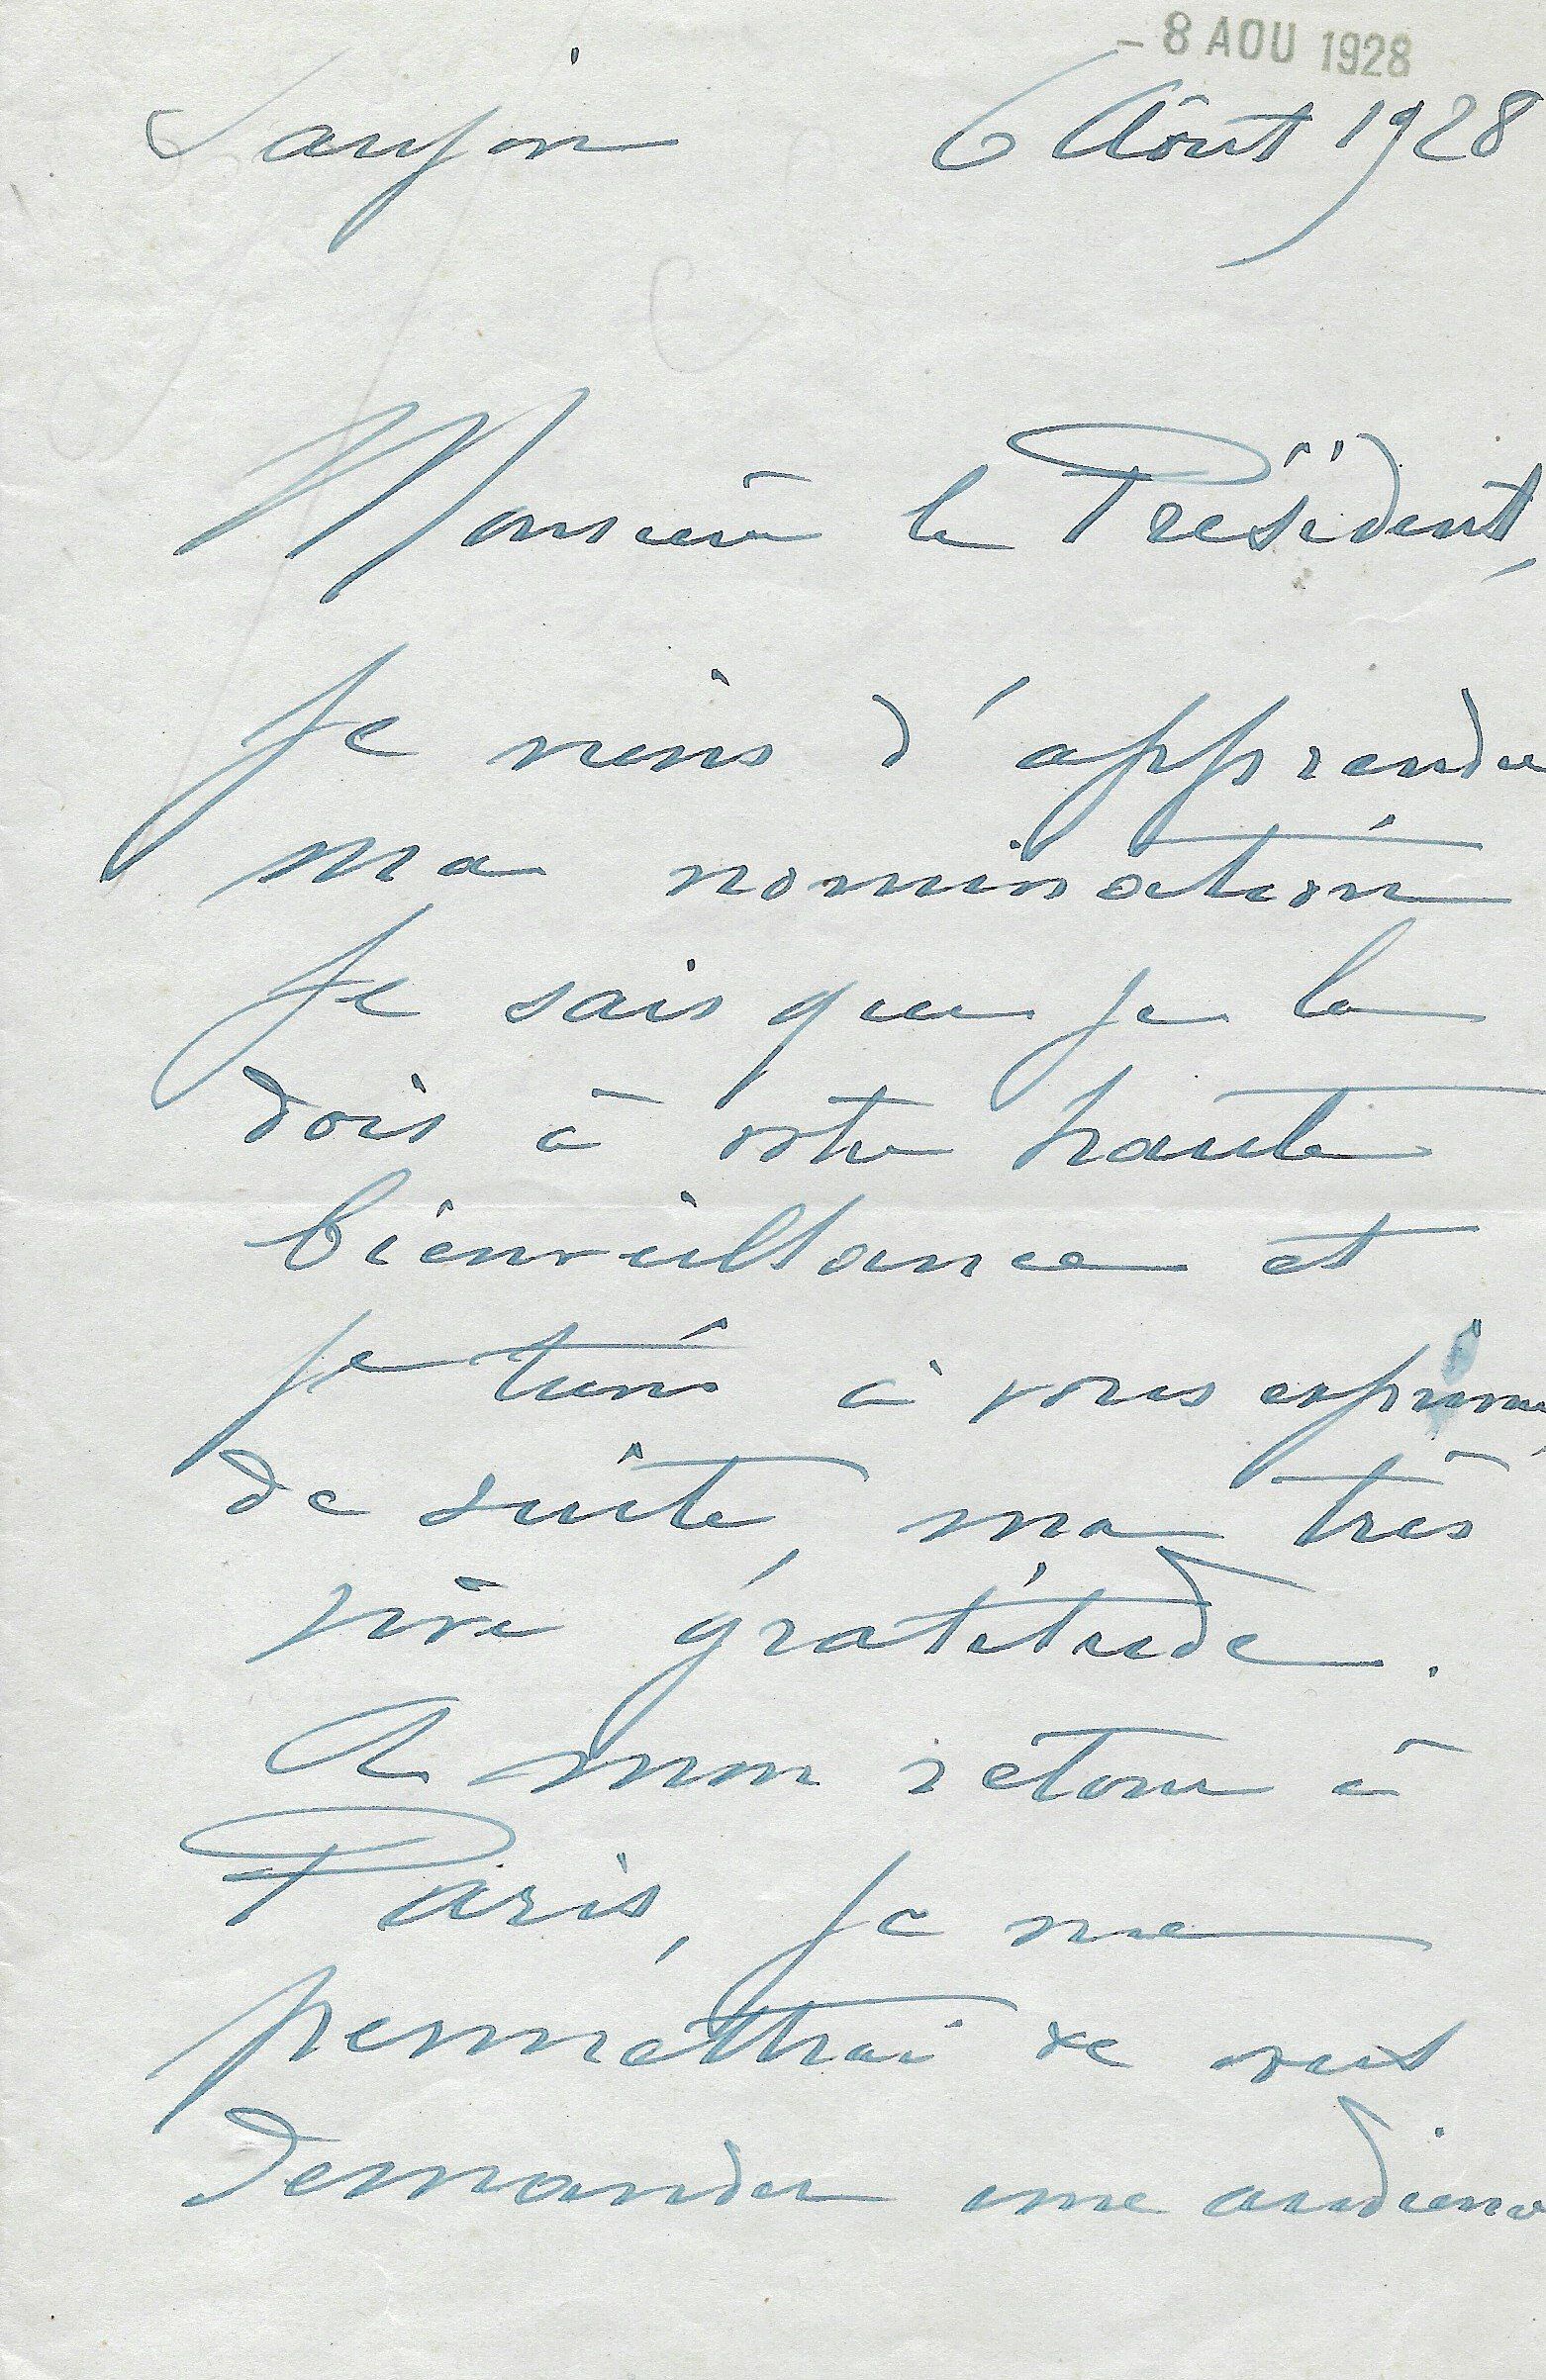 - 8 AOU 1928
Saujon 6 Août 1928
Monsieur le Président,
Je viens d'apprendre
ma nomination
Je sais que je la
dois à votre haute
bienveillance et
je tiens à vous exprimer
de suite, ma très
vive gratitude.
A mon retour à
Paris, je me
permettrai de vous
demander une audience